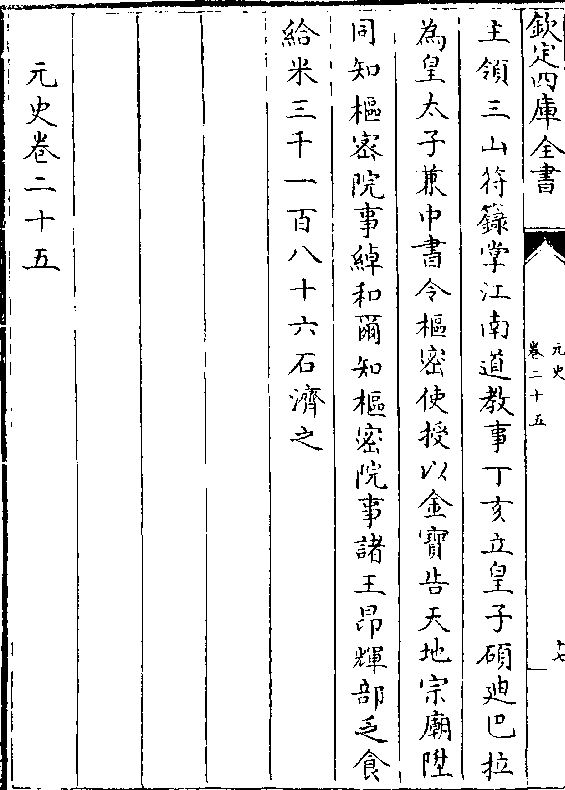 欽定四庫全書
元史
卷二十五
十七
主領三山符籙掌江南道教事丁亥立皇子碩迪巴拉
為皇太子兼中書令樞密使授以金寶告天地宗廟陞
同知樞密院事綽和爾知樞密院事諸王昂輝部乏食
給米三千一百八十六石濟之
元史卷二十五